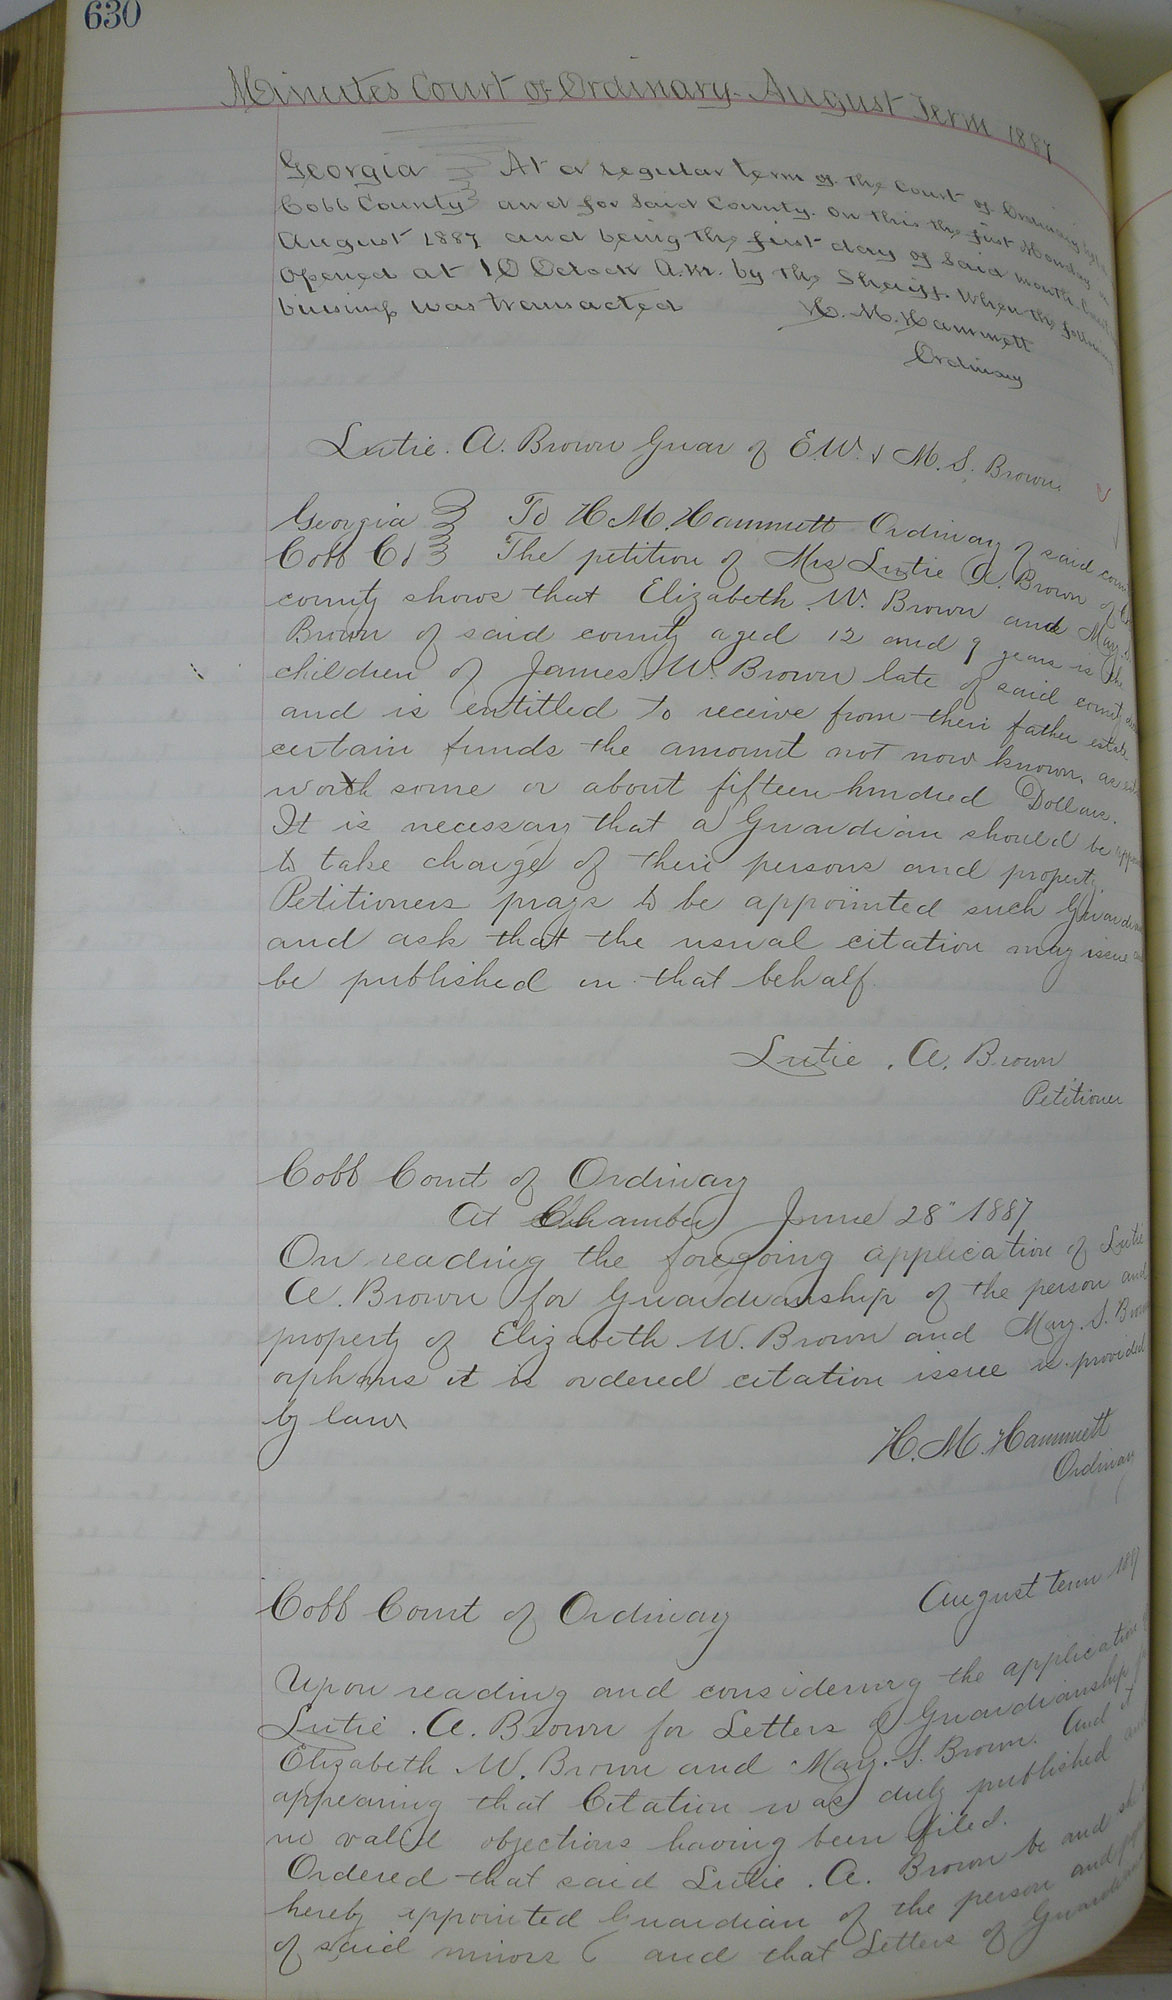 630
Minutes Court of Ordinary. August Term 1887
Georgia At a regular term of the Court of Ordinary
Cobb County and for said County. on this the first Monday in
August 1887 and being the first day of said month. Court
Opened at 10 Oclock A.M. by the Sheriff. When the following
buisness was transacted H. M. Hammett
Ordinary
Lutie. A. Brown Guar of E.W. & M. S. Brown.
Georgia To H M. Hammett Ordinary of said
Cobb Co The petition of Mrs Lutie A. Brown of
county shows that Elizabeth. W. Brown and Mary
Brown of said county aged 12 and 9 years is the
children of James. W. Brown late of said county
and is entitled to receive from their father estate
certain funds the amount not now known,
worth some or about fifteen hundred Dollars.
It is necessary that a Guardian should be
to take charge of their persons and property.
Petitioners prays to be appointed such Guardian
and ask that the usual citation may issue
be published in that behalf.
Lutie. A. Brown
Petitioner
Cobb Court of Ordinary
At Chamber June 28" 1887
On reading the foregoing application of Lutie
A. Brown for Guardianship of the person and
property of Elizabeth W. Brown and Mary. S. Brown
orphans it is ordered citation issue is provided
by law
H. M. Hammett
Ordinary
Cobb Court of Ordinary August term 1887
Upon reading and considering the application
Lutie. A. Brown for Letters of Guardianship
Elizabeth W. Brown and Mary. S. Brown. And it
appearing that Citation was duly published and
no valid objections having been filed.
Ordered that said Lutie. A. Brown be and
hereby appointed Guardian of the person and
of said minors and that Letters of Guardianship